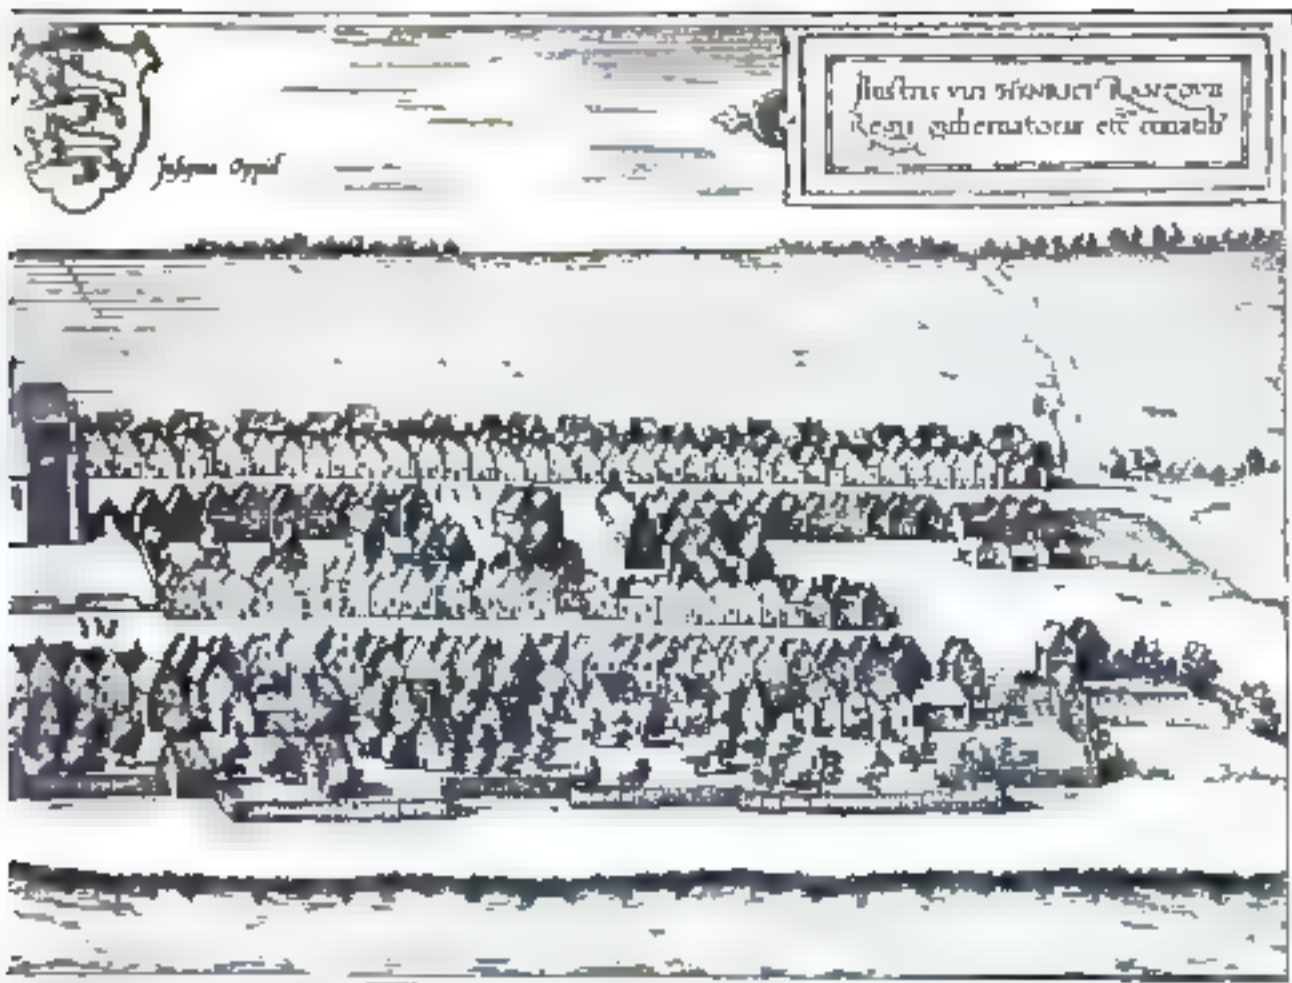 Insigne Oppid
Illustris viri HENRICI RANZOVII
Regii gubernatoris etc conatib